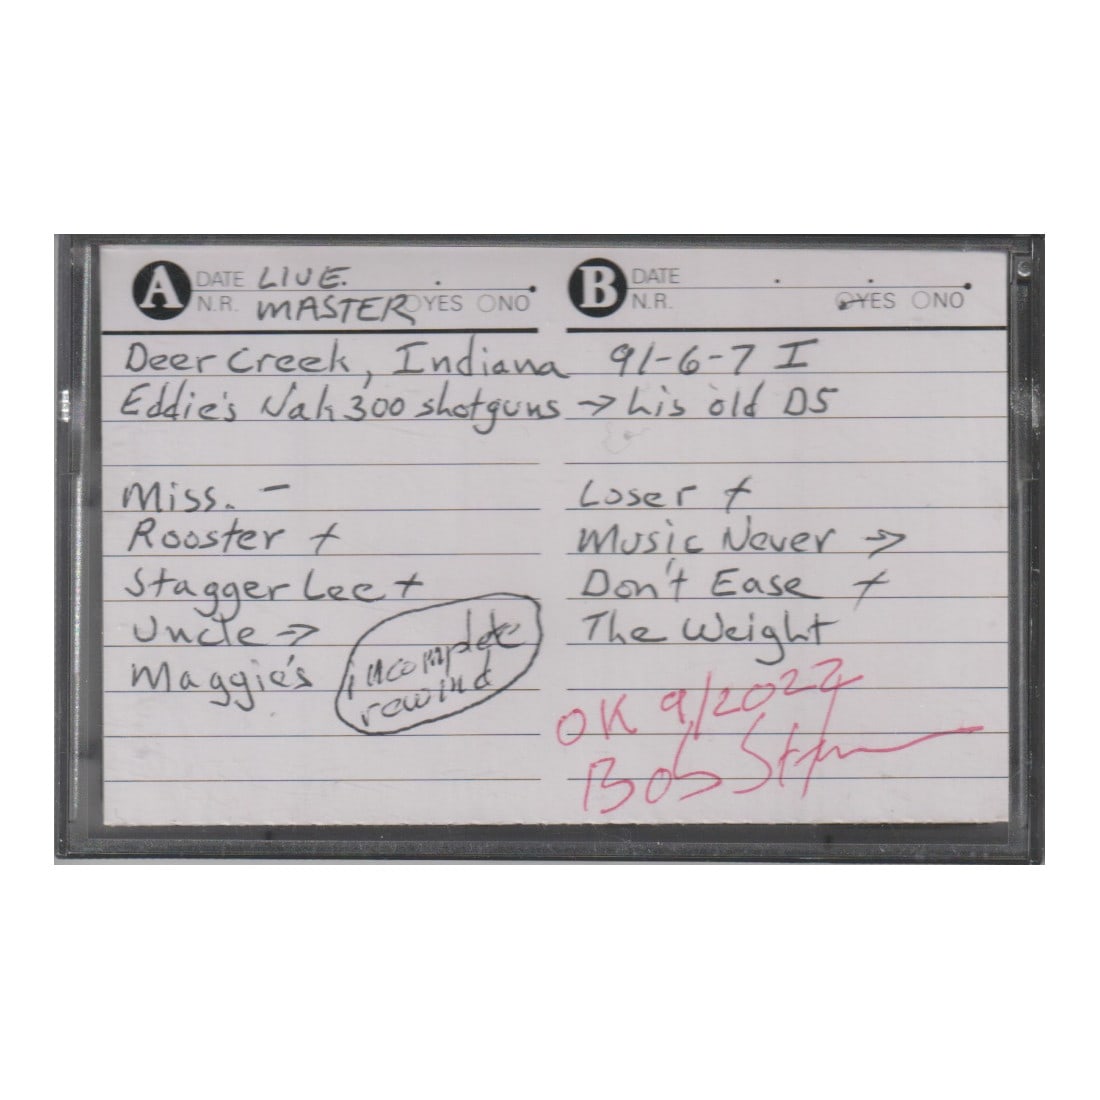 A DATE LIVE.
N.R. MASTER YES NO
B DATE
N.R. YES NO
Deer Creek, Indiana 91-6-7 I
Eddie's Nak 300 shotguns → his old D5
Miss. -
Rooster +
Stagger Lee +
Uncle →
Maggie's
incomplete
rewind
Loser +
Music Never →
Don't Ease +
The Weight
OK 9/2022
Bob